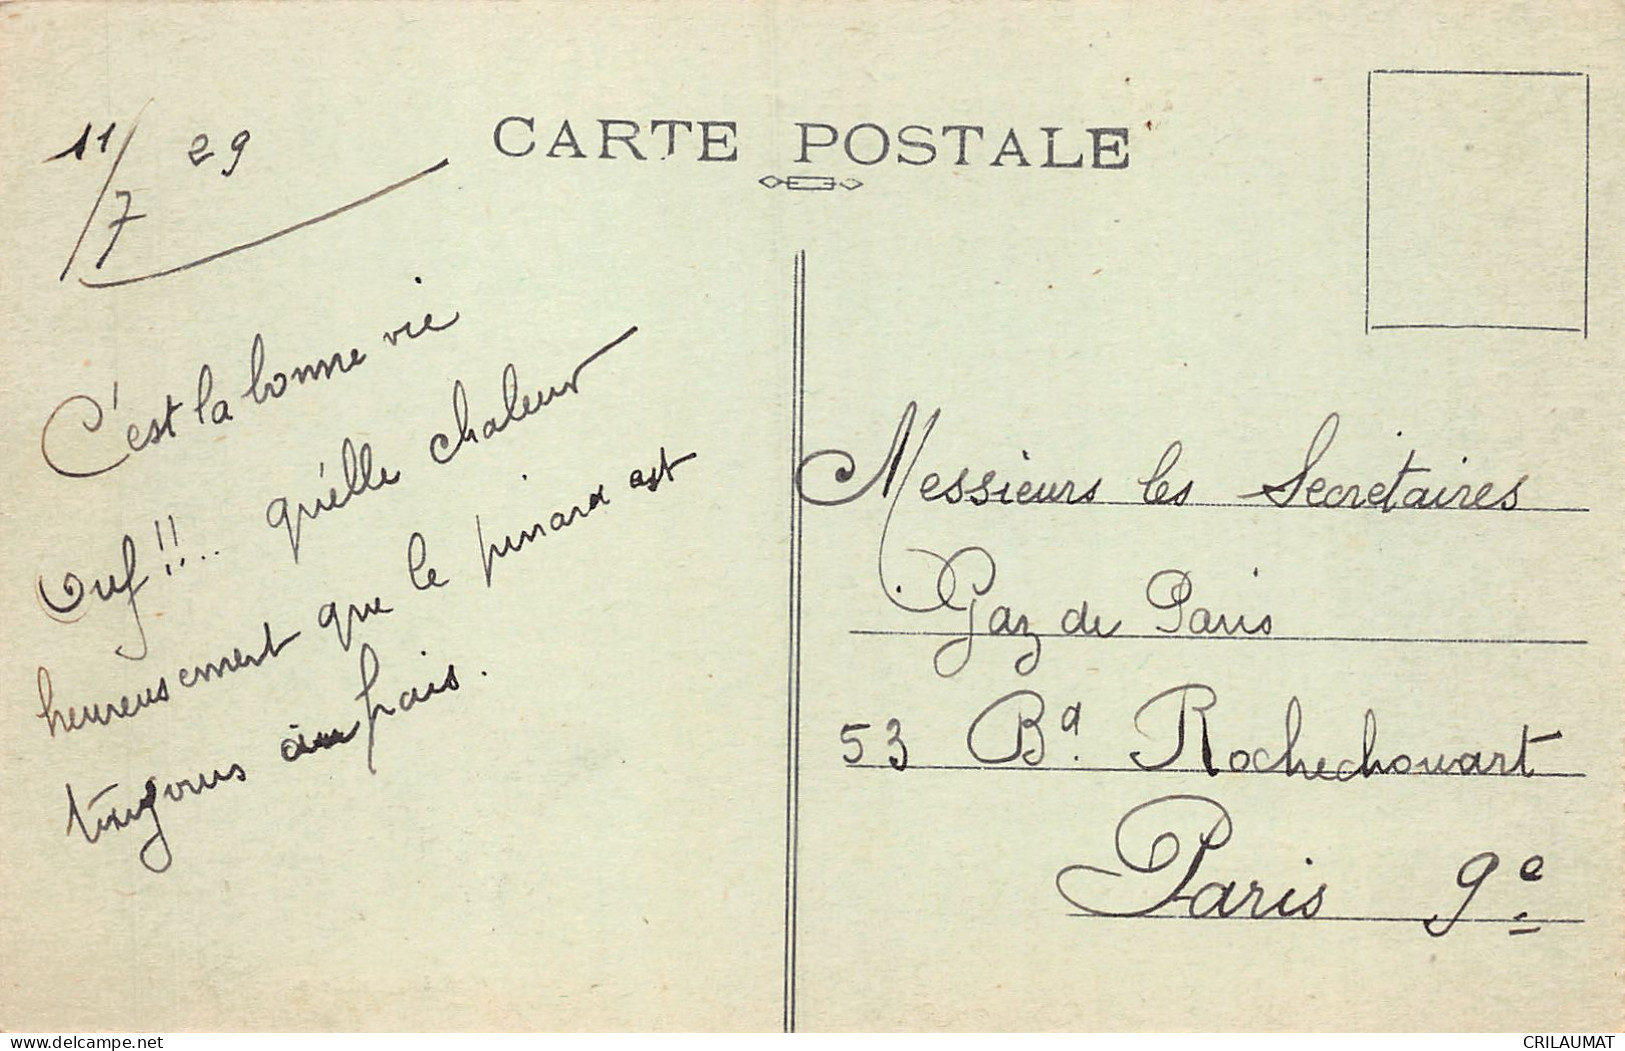 11/7 29
CARTE POSTALE
C'est la bonne vie
Ouf!!... qu'elle chaleur
heureusement que le pinard est
toujours au frais.
Messieurs les Secrétaires
Gaz de Paris
53 Bd. Rochechouart
Paris 9e
www.delcampe.net
CRILAUMAT